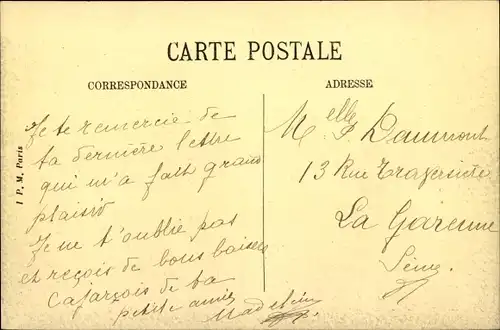 CARTE POSTALE
CORRESPONDANCE
ADRESSE
Je te remercie de
ta dernière lettre
qui m'a fait grand
plaisir
Je ne t'oublie pas
et reçois de bons baisers
de ta
petite amie
Madeleine
Melle Daumont
13 Rue Traversière
La Garenne
Seine.
I P. M. Paris